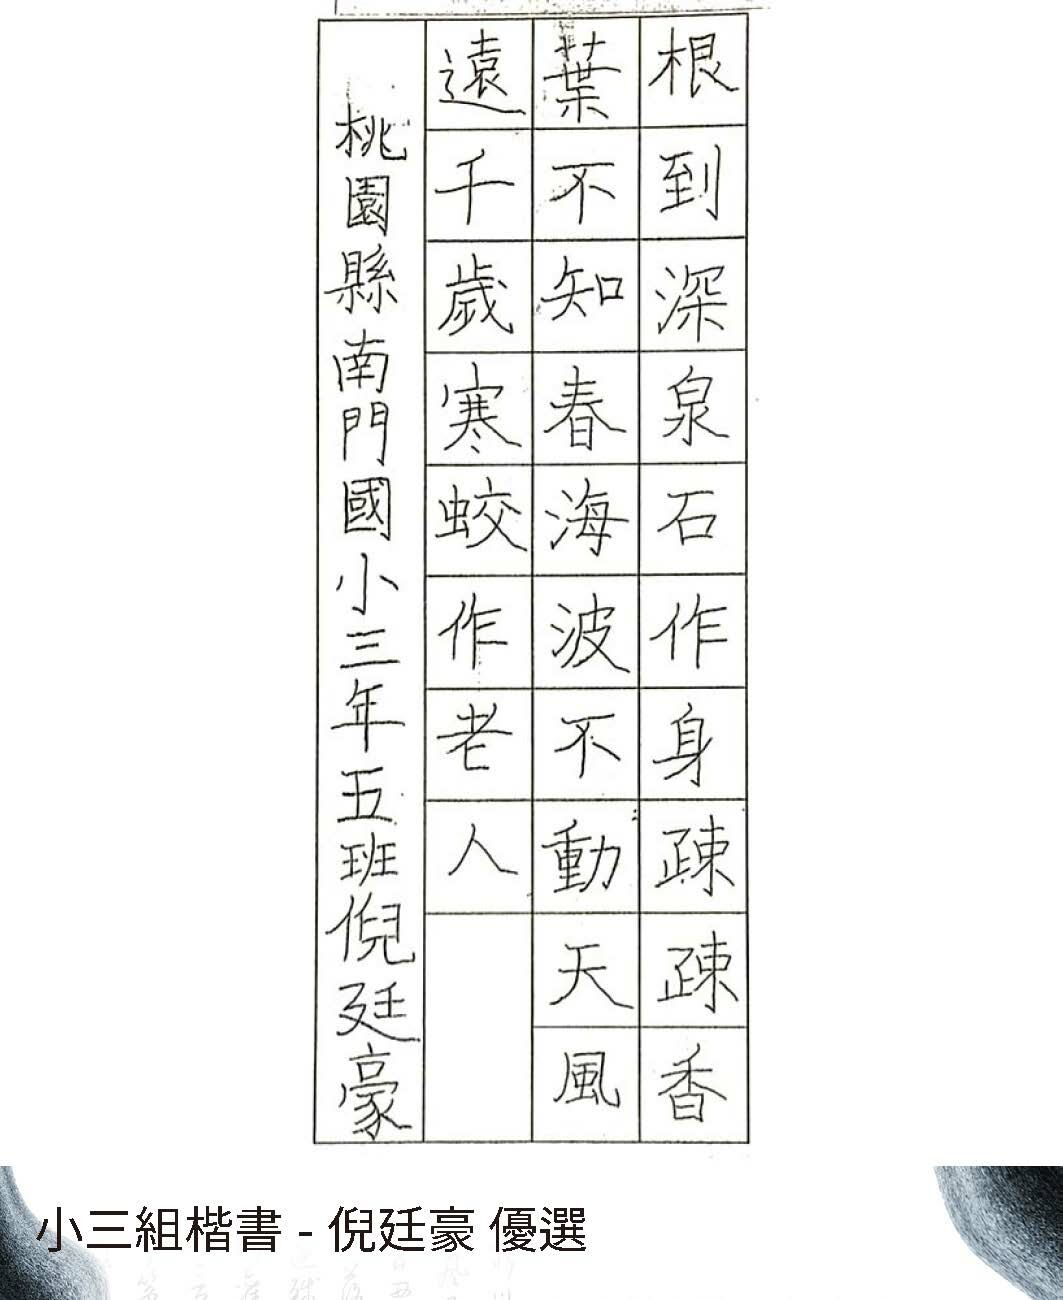 根到深泉石作身疎疎香
葉不知春海波不動天風
遠千歲寒蛟作老人
桃園縣南門國小三年五班倪廷豪
小三組楷書 - 倪廷豪 優選